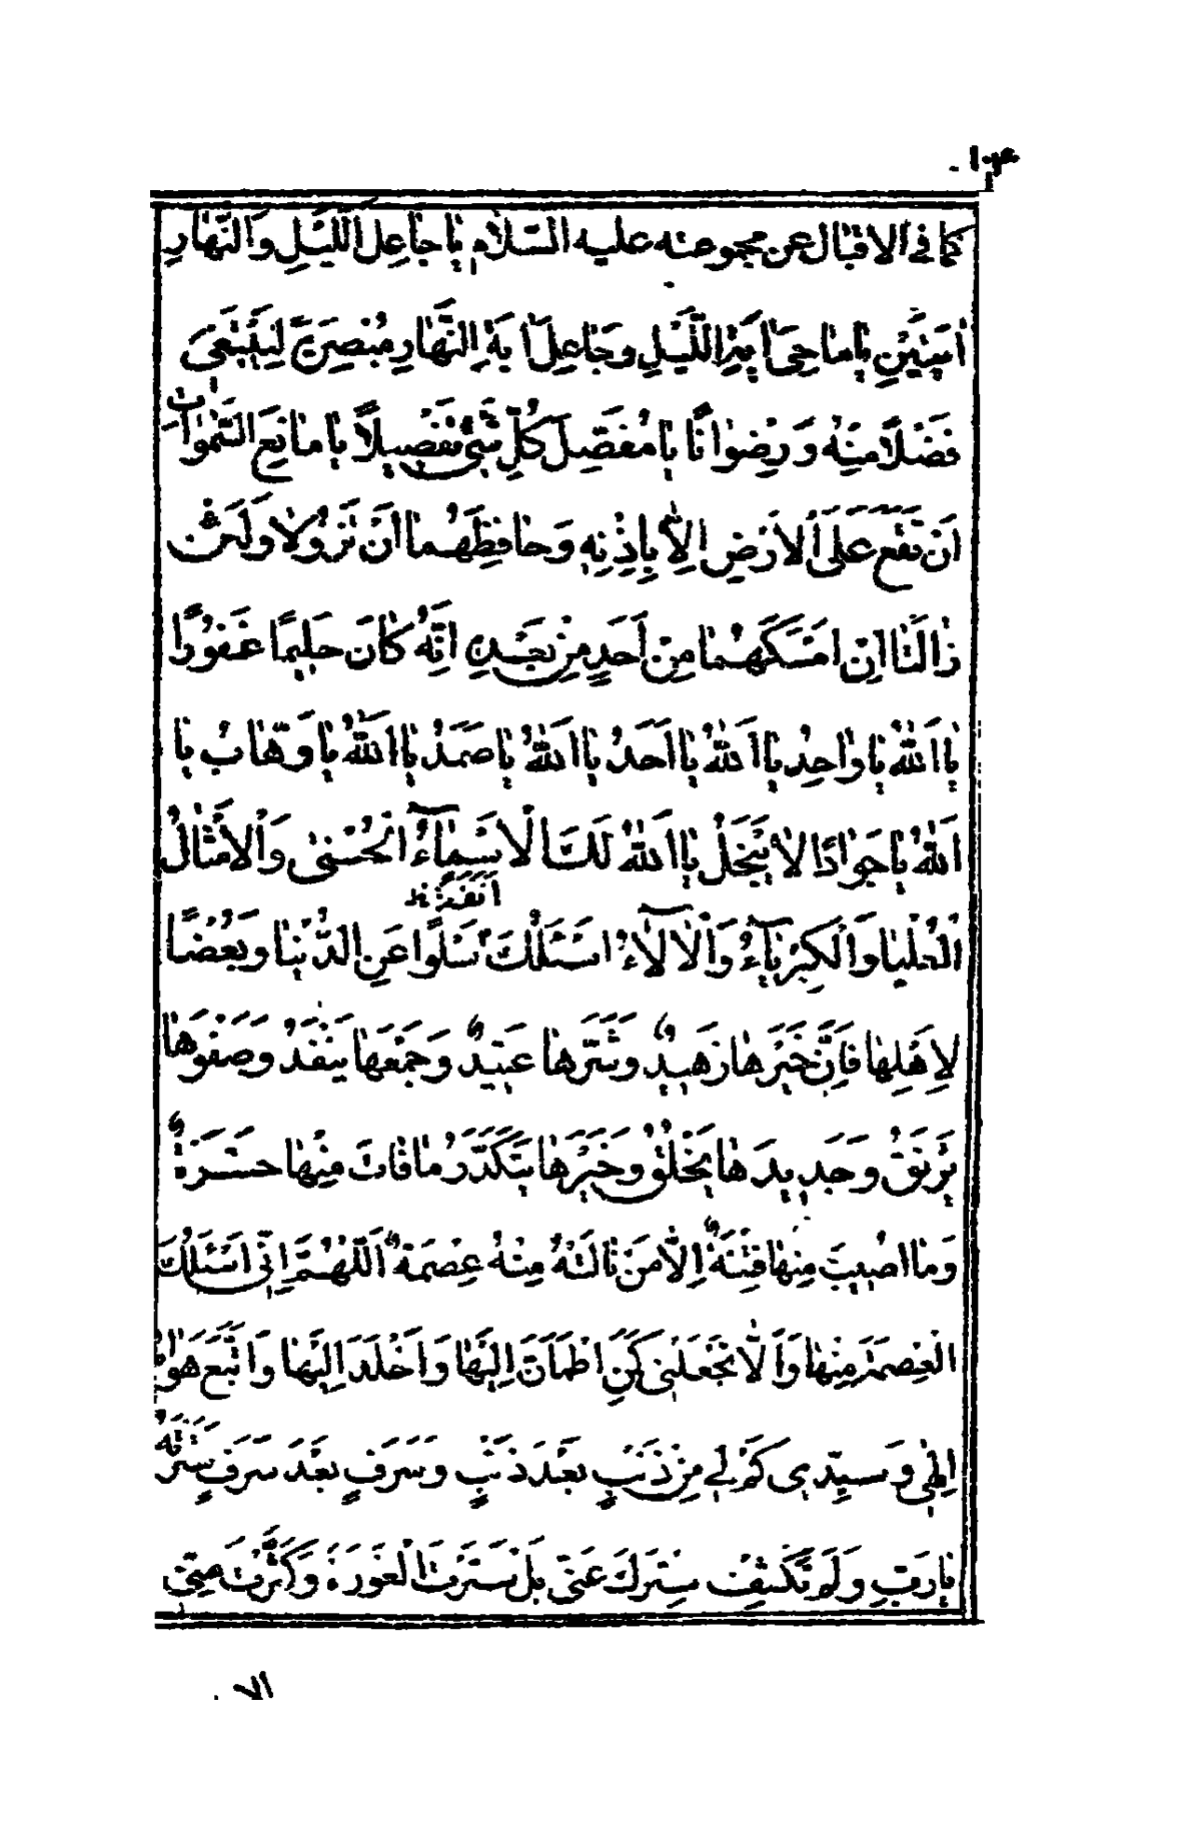 كما فى الاقبال عن مجموعته عليه السلام يا جاعِلَ اللَّيْلِ وَالنَّهارِ
ايَتَيْنِ يا ماحِيَ ايَةِ اللَّيْلِ وَجاعِلَ ايَةِ النَّهارِ مُبْصِرَةً لِيَبْتَغَىَ
فَضْلاً مِنْهُ وَرِضْوانًا يا مُفَصِّلَ كُلِّ شَيْءٍ تَفْصِيلاً يا مانِعَ السَّمواتِ
اَنْ تَقَعَ عَلَى الْاَرْضِ اِلاّ بِاِذْنِهِ وَحافِظَهُما اَنْ تَزُولا وَلَئِنْ
زالَتا اِنْ اَمْسَكَهُما مِنْ اَحَدٍ مِنْ بَعْدِهِ اِنَّهُ كانَ حَلِيمًا غَفُورًا
يا اَللهُ يا واحِدُ يا اَللهُ يا اَحَدُ يا اَللهُ يا صَمَدُ يا اَللهُ يا وَهّابُ يا
اَللهُ يا جَوادًا لا يَبْخَلُ يا اَللهُ لَكَ الْاَسْماءُ الْحُسْنى وَالْاَمْثالُ
الْعُلْيا وَالْكِبْرِياءُ وَالْآلاءُ اَسْئَلُكَ سَلْوًا عَنِ الدُّنْيا وَبُغْضًا
لِاَهْلِها فَاِنَّ خَيْرَها زَهِيدٌ وَشَرَّها عَتِيدٌ وَجَمْعَها يَنْفَدُ وَصَفْوَها
يَرْنَقُ وَجَدِيدَها يَخْلُقُ وَخَيْرَها يَتَكَدَّرُ ما فاتَ مِنْها حَسْرَةٌ
وَما اُصِيبَ مِنْها فِتْنَةٌ اِلاّ مَنْ نالَتْهُ مِنْهُ عِصْمَةٌ اَللّهُمَّ اِنّى اَسْئَلُكَ
الْعِصْمَةَ مِنْها وَاَلاّ تَجْعَلَنى كَمَنِ اطْمَاَنَّ اِلَيْها وَاَخْلَدَ اِلَيْها وَاتَّبَعَ هَواهُ
اِلهى وَسَيِّدى كَمْ لى مِنْ ذَنْبٍ بَعْدَ ذَنْبٍ وَسَرَفٍ بَعْدَ سَرَفٍ سَتَرْتَهُ
يا رَبِّ وَلَمْ تَكْشِفْ سِتْرَكَ عَنّى بَلْ سَتَرْتَ الْعَوْرَةَ وَكَثُرَتْ مِنِّى